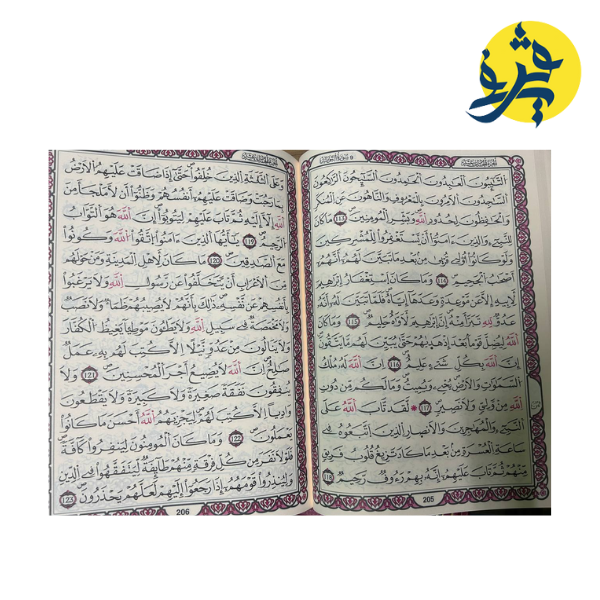 التَّٰٓئِبُونَ الْعَٰبِدُونَ الْحَٰمِدُونَ السَّٰٓئِحُونَ الرَّٰكِعُونَ
السَّٰجِدُونَ الْأَمِرُونَ بِالْمَعْرُوفِ وَالنَّاهُونَ عَنِ الْمُنكَرِ
وَالْحَٰفِظُونَ لِحُدُودِ اللَّهِ وَبَشِّرِ الْمُومِنِينَ 113 مَا كَانَ
لِلنَّبِيِٓءِ وَالَّذِينَ ءَامَنُوٓا أَنْ يَّسْتَغْفِرُوا لِلْمُشْرِكِينَ
وَلَوْ كَانُوٓا أُوْلِي قُرْبَىٰ مِنۢ بَعْدِ مَا تَبَيَّنَ لَهُمُۥٓ أَنَّهُمُۥٓ
أَصْحَٰبُ الْجَحِيمِ 114 وَمَا كَانَ اسْتِغْفَارُ إِبْرَٰهِيمَ
لِأَبِيهِ إِلَّا عَن مَّوْعِدَةٍ وَعَدَهَآ إِيَّاهُ فَلَمَّا تَبَيَّنَ لَهُۥٓ أَنَّهُۥ
عَدُوٌّ لِلهِ تَبَرَّأَ مِنْهُ إِنَّ إِبْرَٰهِيمَ لَأَوَّٰهٌ حَلِيمٌ 115 وَمَا كَانَ
اللَّهُ لِيُضِلَّ قَوْمًا بَعْدَ إِذْ هَدَىٰهُمْ حَتَّىٰ يُبَيِّنَ لَهُم مَّا يَتَّقُونَ
إِنَّ اللَّهَ بِكُلِّ شَيْءٍ عَلِيمٌ 116 إِنَّ اللَّهَ لَهُۥ مُلْكُ
السَّمَٰوَٰتِ وَالْأَرْضِ يُحْيِۦ وَيُمِيتُ وَمَا لَكُم مِّن دُونِ
اللَّهِ مِنْ وَّلِيٍّ وَلَا نَصِيرٍ 117 لَّقَد تَّابَ اللَّهُ عَلَى
النَّبِيِٓءِ وَالْمُهَٰجِرِينَ وَالْأَنصَارِ الَّذِينَ اتَّبَعُوهُ فِي
سَاعَةِ الْعُسْرَةِ مِنۢ بَعْدِ مَا كَادَ تَزِيغُ قُلُوبُ فَرِيقٍ
مِّنْهُمْ ثُمَّ تَابَ عَلَيْهِمُۥٓ إِنَّهُۥ بِهِمْ رَءُوفٌ رَّحِيمٌ 118
205
وَعَلَى الثَّلَٰثَةِ الَّذِينَ خُلِّفُوا حَتَّىٰٓ إِذَا ضَاقَتْ عَلَيْهِمُ الْأَرْضُ
بِمَا رَحُبَتْ وَضَاقَتْ عَلَيْهِمُۥٓ أَنفُسُهُمْ وَظَنُّوٓا أَن لَّا مَلْجَأَ مِنَ
اللَّهِ إِلَّآ إِلَيْهِ ثُمَّ تَابَ عَلَيْهِمْ لِيَتُوبُوٓا إِنَّ اللَّهَ هُوَ التَّوَّابُ
الرَّحِيمُ 119 يَٰٓأَيُّهَا الَّذِينَ ءَامَنُوا اتَّقُوا اللَّهَ وَكُونُوا
مَعَ الصَّٰدِقِينَ 120 مَا كَانَ لِأَهْلِ الْمَدِينَةِ وَمَنْ حَوْلَهُم
مِّنَ الْأَعْرَابِ أَنْ يَّتَخَلَّفُوا عَن رَّسُولِ اللَّهِ وَلَا يَرْغَبُوا
بِأَنفُسِهِمْ عَن نَّفْسِهِۦ ذَٰلِكَ بِأَنَّهُمْ لَا يُصِيبُهُمْ ظَمَأٌ وَلَا نَصَبٌ
وَلَا مَخْمَصَةٌ فِي سَبِيلِ اللَّهِ وَلَا يَطَـُٔونَ مَوْطِئًا يَغِيظُ الْكُفَّارَ
وَلَا يَنَالُونَ مِنْ عَدُوٍّ نَّيْلًا إِلَّا كُتِبَ لَهُم بِهِۦ عَمَلٌ
صَٰلِحٌ إِنَّ اللَّهَ لَا يُضِيعُ أَجْرَ الْمُحْسِنِينَ 121 وَلَا
يُنفِقُونَ نَفَقَةً صَغِيرَةً وَلَا كَبِيرَةً وَلَا يَقْطَعُونَ
وَادِيًا إِلَّا كُتِبَ لَهُمْ لِيَجْزِيَهُمُ اللَّهُ أَحْسَنَ مَا كَانُوا
يَعْمَلُونَ 122 وَمَا كَانَ الْمُومِنُونَ لِيَنفِرُوا كَآفَّةً
فَلَوْلَا نَفَرَ مِن كُلِّ فِرْقَةٍ مِّنْهُمْ طَآئِفَةٌ لِّيَتَفَقَّهُوا فِي الدِّينِ
وَلِيُنذِرُوا قَوْمَهُمُۥٓ إِذَا رَجَعُوٓا إِلَيْهِمْ لَعَلَّهُمْ يَحْذَرُونَ 123
206